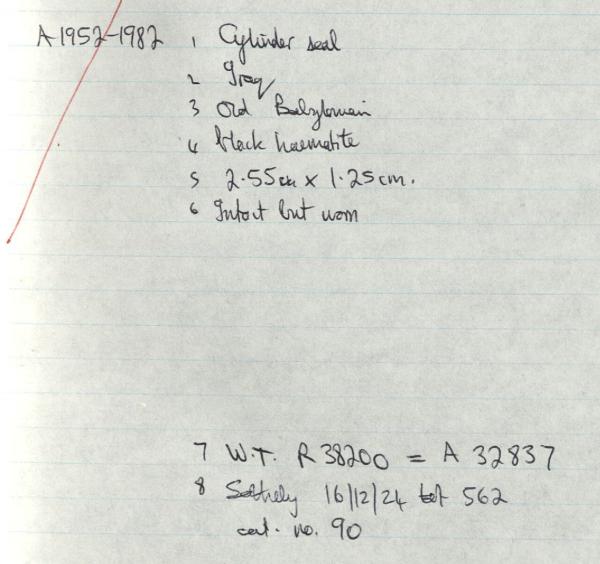 A 1952-1982 1 Cylinder seal
2 Iraq
3 Old Babylonian
4 black haematite
5 2.55cm x 1.25cm.
6 Intact but worn
7 W.T. R 38200 = A 32837
8 Sotheby 16/12/24 lot 562
cat. no. 90